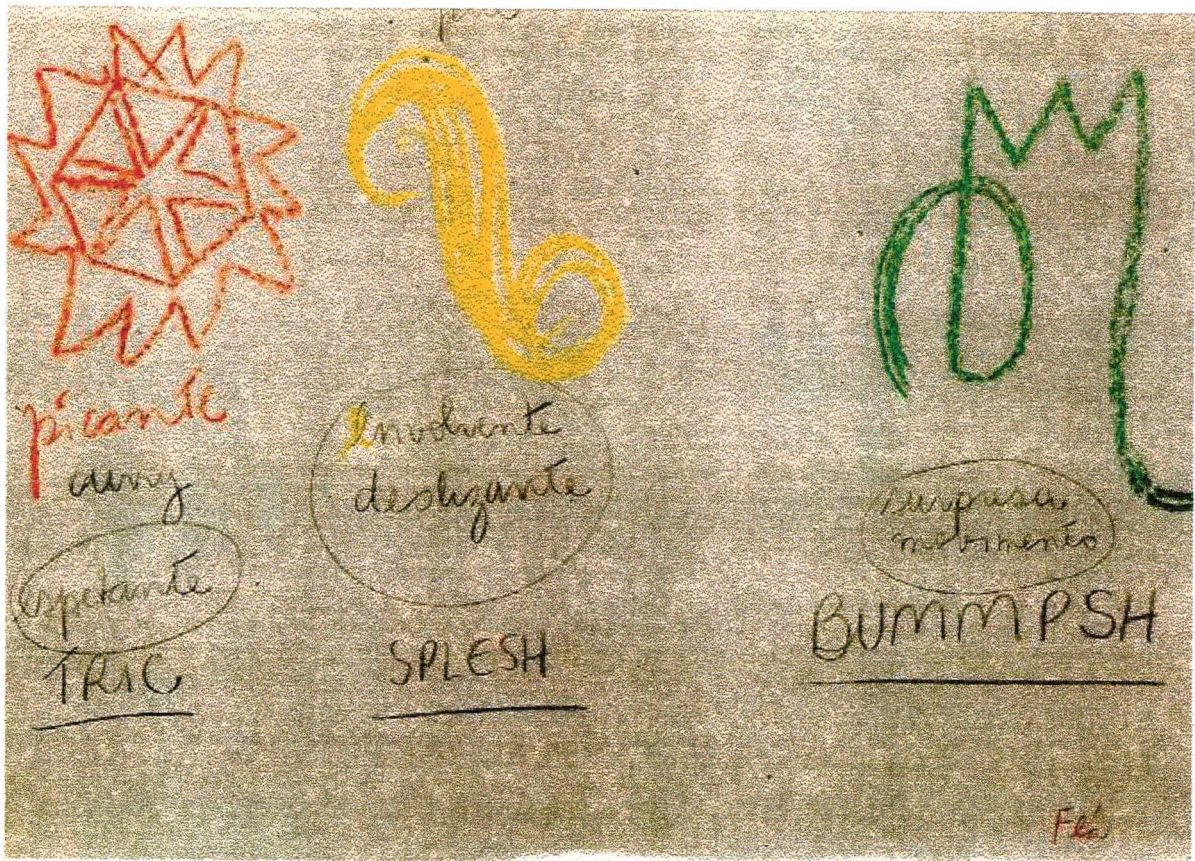 picante
curry
espetante
TRIC
Envolvente
deslizante
SPLESH
surpresa
movimento
BUMMPSH